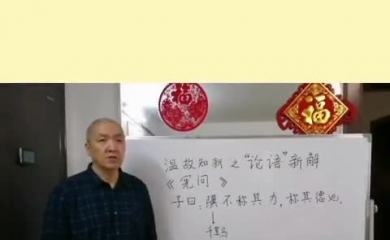 福
福
温故知新之“论语”新解
《宪问》
子曰：骥不称其力，称其德也。